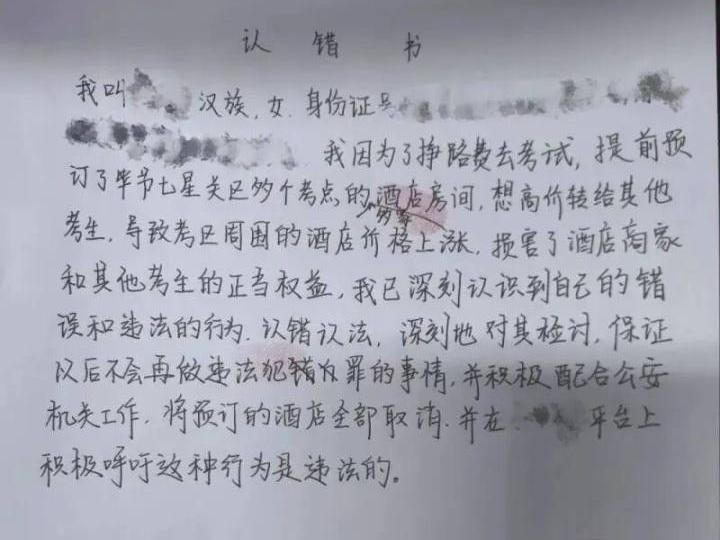 认 错 书
我叫 汉族, 女. 身份证号
我因为了挣路费去考试, 提前预
订了毕节七星关区多个考点的多家酒店房间, 想高价转给其他
考生, 导致考区周围的酒店价格上涨, 损害了酒店商家
和其他考生的正当权益, 我已深刻认识到自己的错
误和违法的行为. 认错认法, 深刻地对其检讨, 保证
以后不会再做违法犯罪的事情, 并积极配合公安
机关工作. 将预订的酒店全部取消. 并在 平台上
积极呼吁这种行为是违法的。